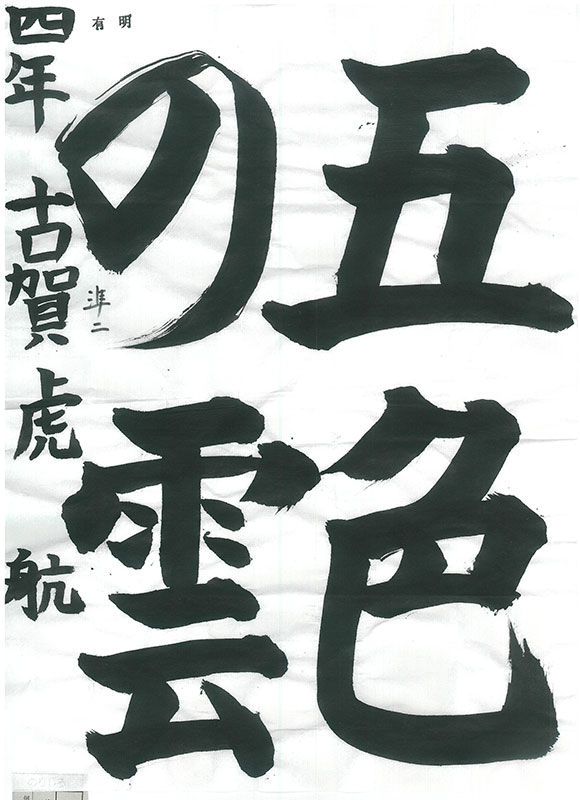 五色
の雲
四年 古賀虎航
有明
準二